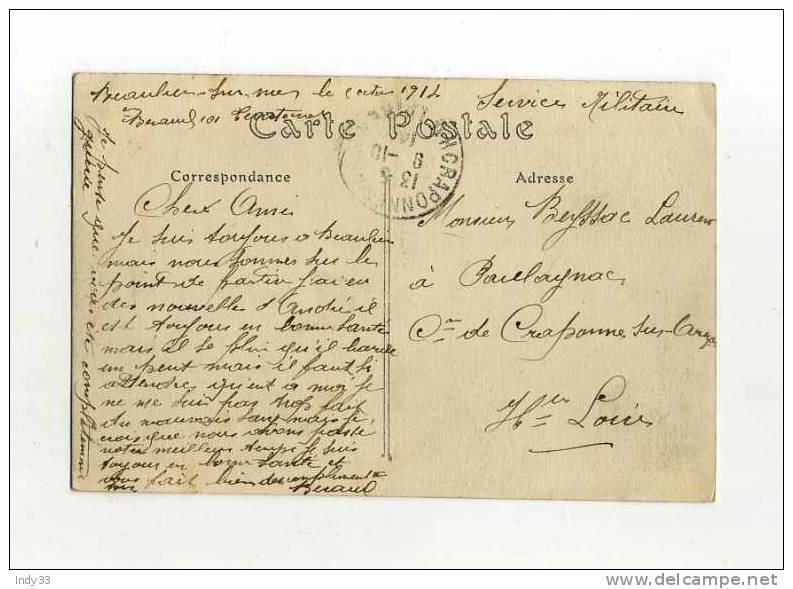 Beaulieu sur mer le octo 1914
Beraud
Service Militaire
Carte Postale
CRAPONNE
13 5
9 -10
14
Correspondance
Adresse
Cher Ami
Je suis toujours a Beaulieu
mais nous sommes sur le
point de partir j'ai eu
des nouvelle d'André il
est toujours en bonne santé
mais il se plin qu'il barde
un peut mais il faut si
attendre quent a moi je
ne me suis pas trop fait
du mauvais sant mais je
crois que nous avons passé
notre meilleur temps je suis
toujours en bonne santé et
vous fait bien des compliments
Beraud
Je pense que vous ete complètement
guérie
Monsieur Beyssac Laurent
à Paulagnac
Cne de Craponne sur Arzon
Hte Loire
Indy33
http://www.delcampe.net